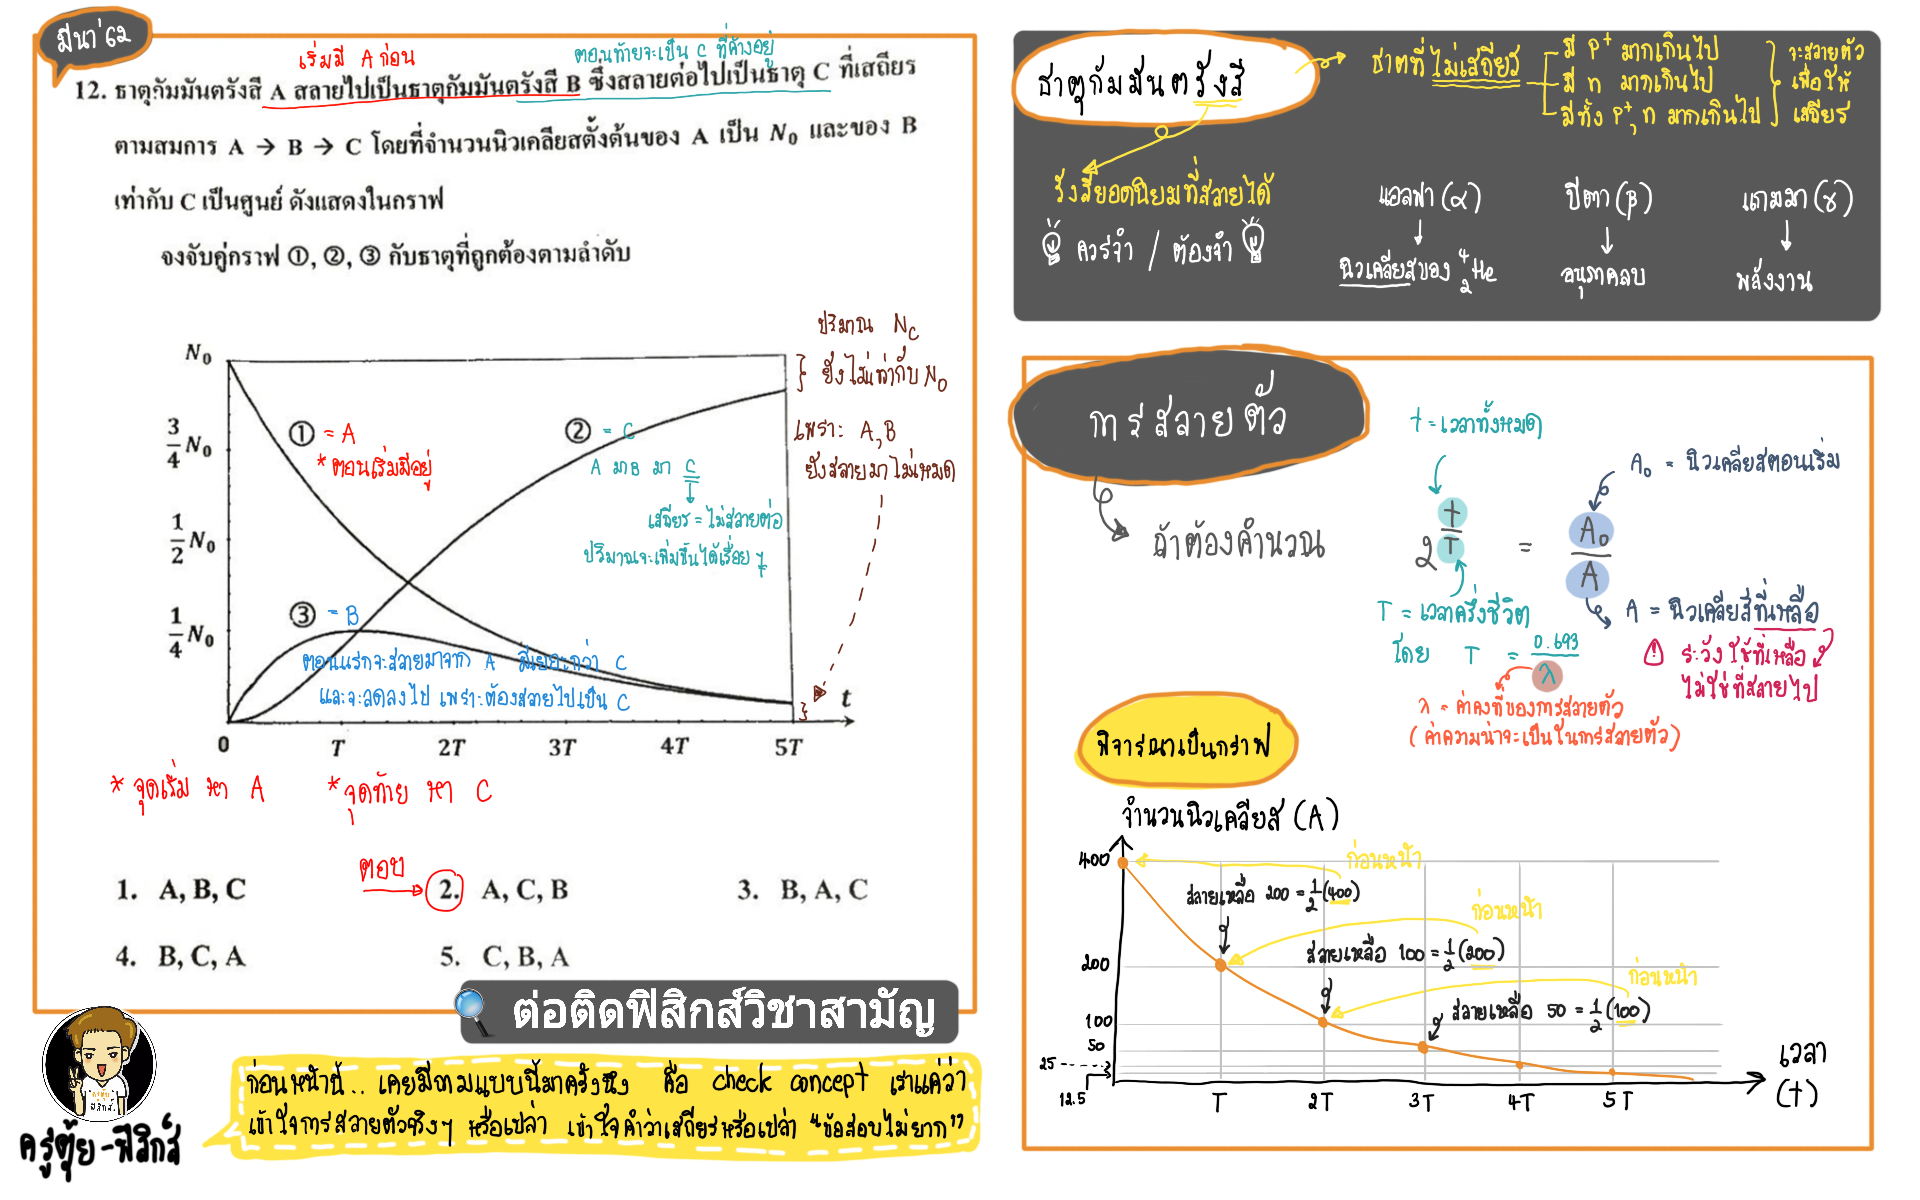 มีนา'62
เริ่มมี A ก่อน
ตอนท้ายจะเป็น C ที่ค้างอยู่
12. ธาตุกัมมันตรังสี A สลายไปเป็นธาตุกัมมันตรังสี B ซึ่งสลายต่อไปเป็นธาตุ C ที่เสถียร
ตามสมการ A → B → C โดยที่จำนวนนิวเคลียสตั้งต้นของ A เป็น N₀ และของ B
เท่ากับ C เป็นศูนย์ ดังแสดงในกราฟ
จงจับคู่กราฟ ①, ②, ③ กับธาตุที่ถูกต้องตามลำดับ
ปริมาณ Nc
ยังไม่เท่ากับ N₀
เพราะ A, B
ยังสลายมาไม่หมด
N₀
3/4 N₀
1/2 N₀
1/4 N₀
① = A
* ตอนเริ่มมีอยู่
② = C
A มา B มา C
เสถียร = ไม่สลายต่อ
ปริมาณจะเพิ่มขึ้นได้เรื่อย ๆ
③ = B
ตอนแรกจะสลายมาจาก A มีเยอะกว่า C
และจะลดลงไป เพราะต้องสลายไปเป็น C
t
0 T 2T 3T 4T 5T
* จุดเริ่ม หา A
* จุดท้าย หา C
ตอบ
1. A, B, C
2. A, C, B
3. B, A, C
4. B, C, A
5. C, B, A
ต่อติดฟิสิกส์วิชาสามัญ
ก่อนหน้านี้.. เคยมีถามแบบนี้มาครั้งนึง คือ check concept เราแค่ว่า
เข้าใจการสลายตัวจริงๆ หรือเปล่า เข้าใจคำว่าเสถียรหรือเปล่า "ข้อสอบไม่ยาก"
ครูตุ้ย-ฟิสิกส์
ธาตุกัมมันตรังสี
ธาตุที่ไม่เสถียร
มี P⁺ มากเกินไป
มี n มากเกินไป
มีทั้ง P⁺, n มากเกินไป
จะสลายตัว
เพื่อให้
เสถียร
รังสียอดนิยมที่สลายได้
ควรจำ / ต้องจำ
แอลฟา (α)
นิวเคลียสของ ⁴₂He
บีตา (β)
อนุภาคลบ
แกมมา (γ)
พลังงาน
การสลายตัว
ถ้าต้องคำนวณ
t = เวลาทั้งหมด
A₀ = นิวเคลียสตอนเริ่ม
2^(t/T) = A₀/A
T = เวลาครึ่งชีวิต
โดย T = 0.693/λ
A = นิวเคลียสที่เหลือ
ระวัง ใช้ที่เหลือ
ไม่ใช่ที่สลายไป
λ = ค่าคงที่ของการสลายตัว
(ค่าความน่าจะเป็นในการสลายตัว)
พิจารณาเป็นกราฟ
จำนวนนิวเคลียส (A)
400
200
100
50
25
12.5
ก่อนหน้า
สลายเหลือ 200 = 1/2 (400)
ก่อนหน้า
สลายเหลือ 100 = 1/2 (200)
ก่อนหน้า
สลายเหลือ 50 = 1/2 (100)
T 2T 3T 4T 5T
เวลา
(t)